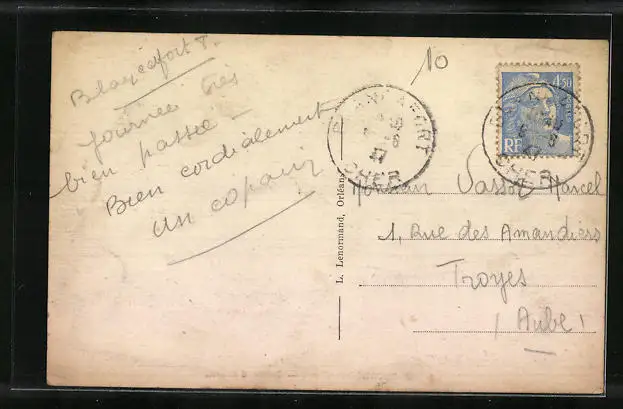 Blancafort
journée très
bien passée -
Bien cordialement
un copain
10
BLANCAFORT
CHER
4,50
RF
BLANCAFORT
CHER
L. Lenormand, Orléans
Vassot Marcel
1, Rue des Amandiers
Troyes
(Aube)